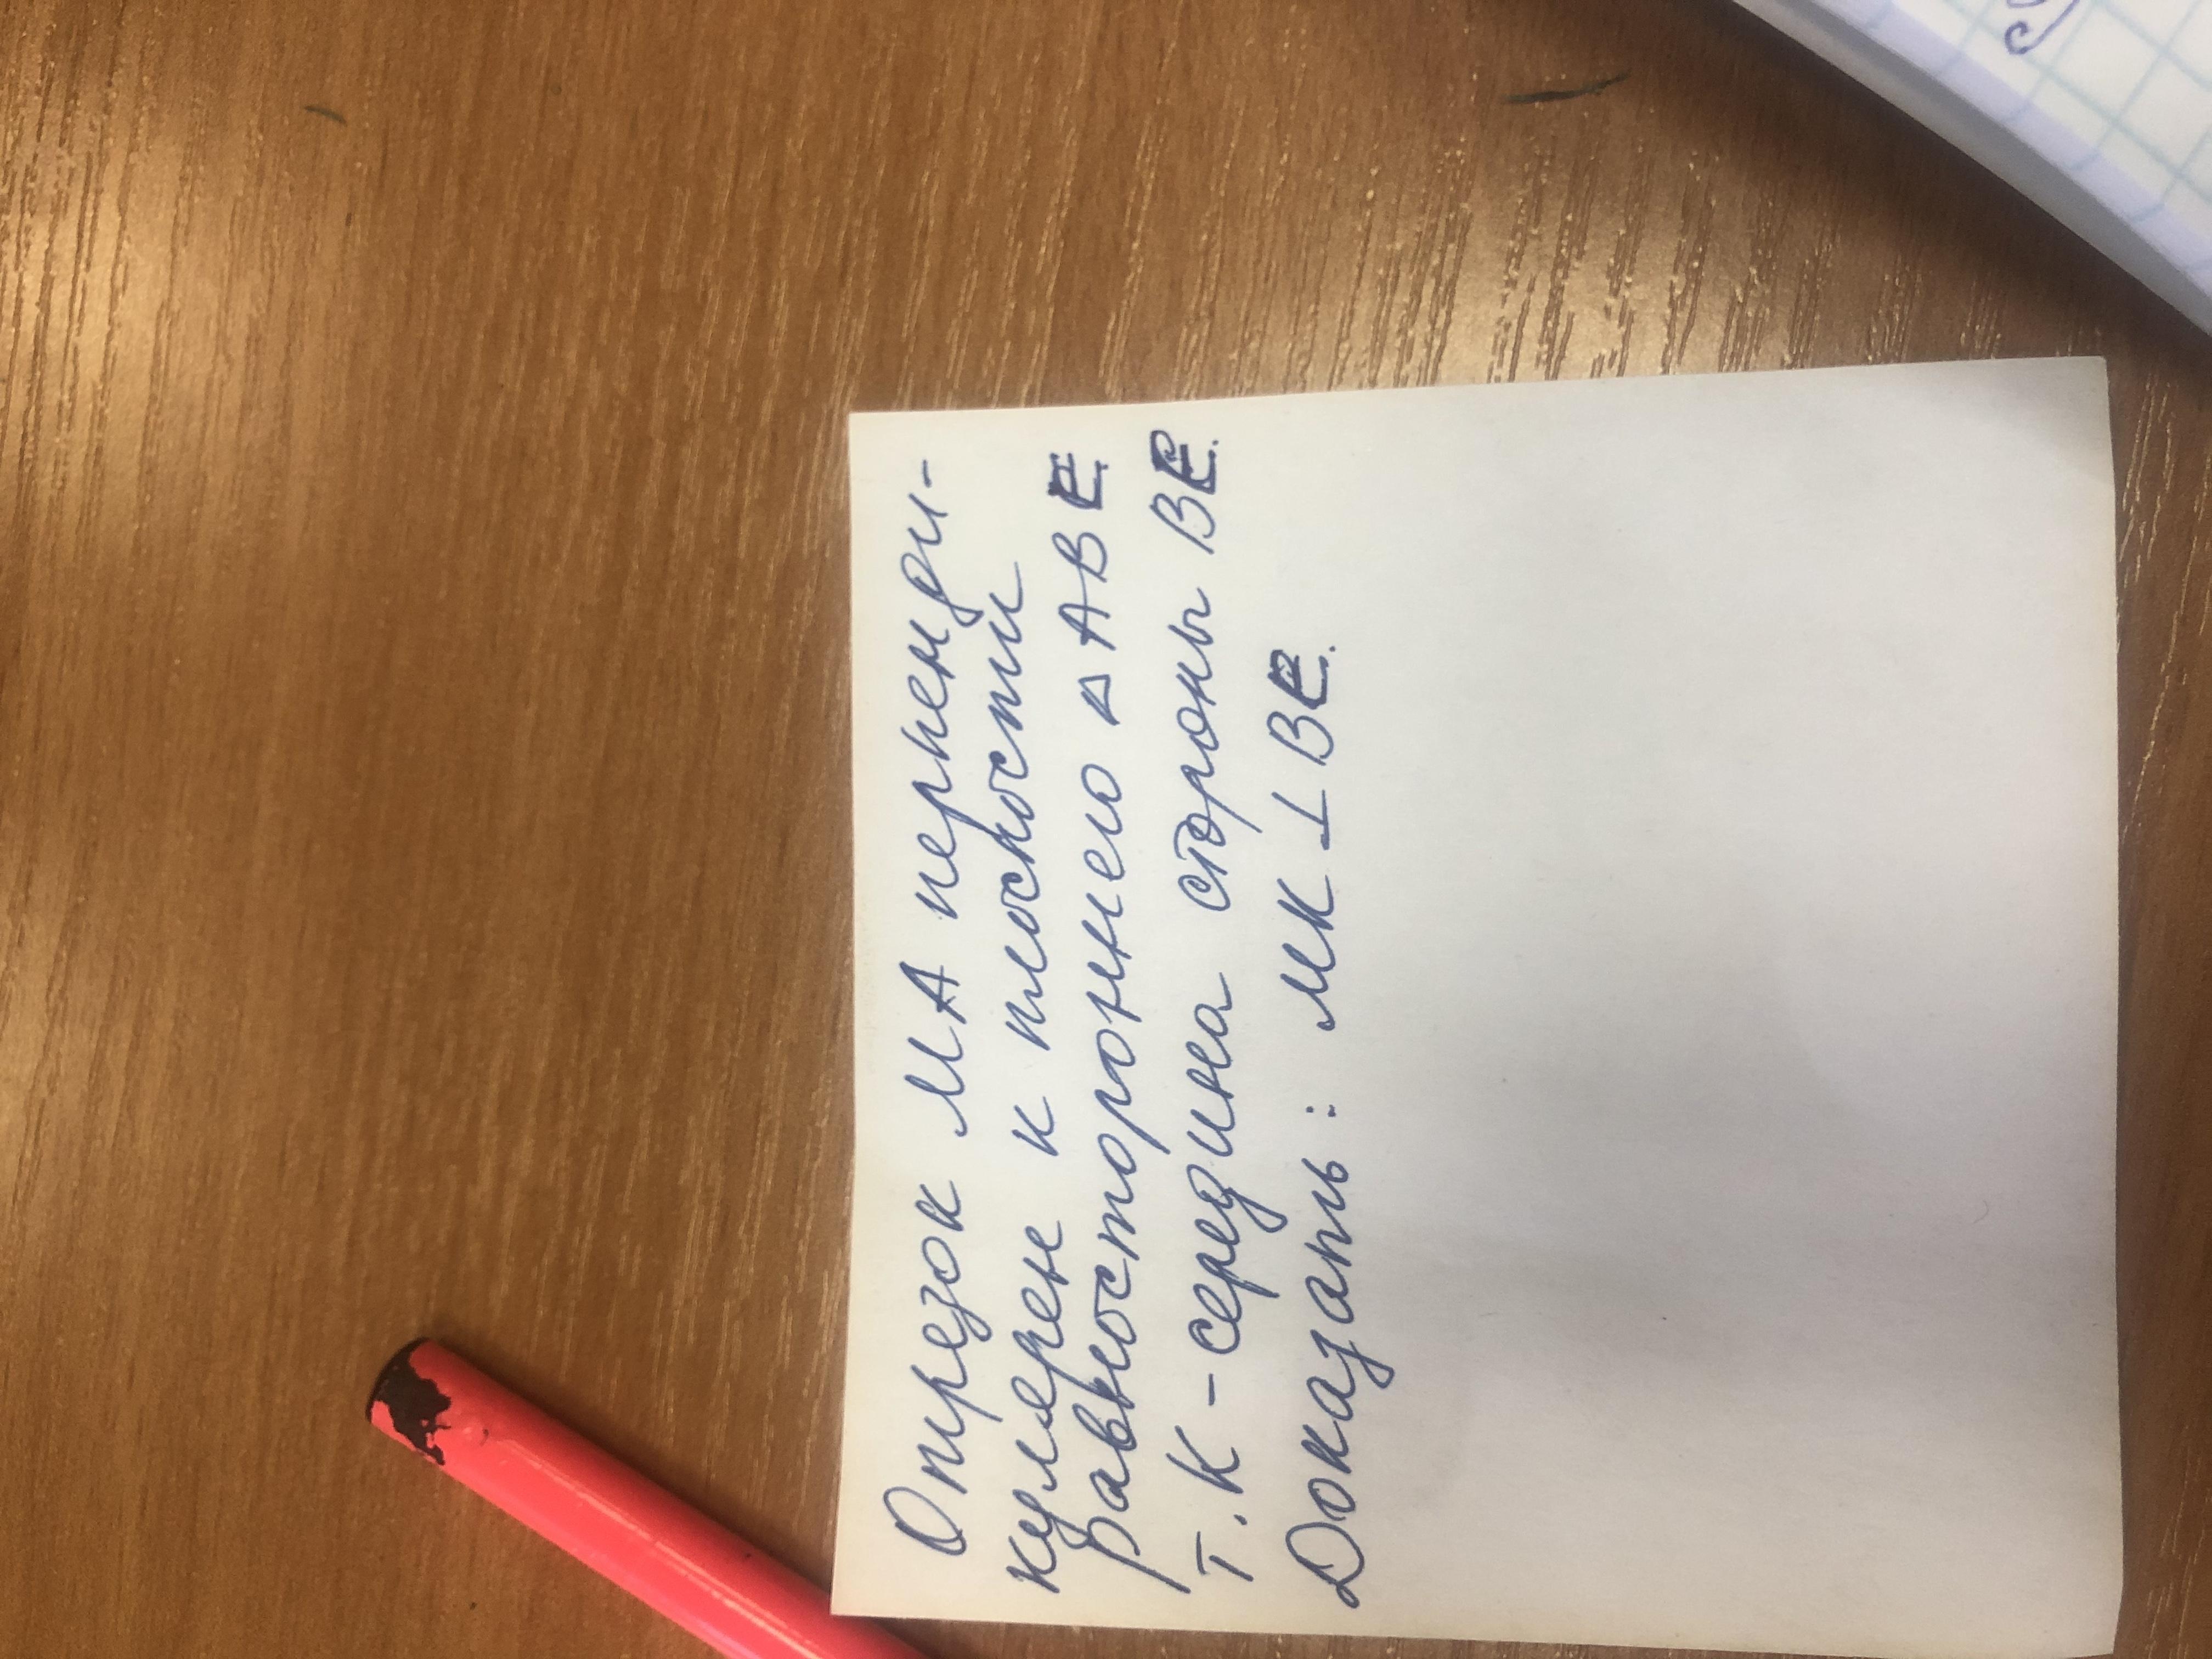 Отрезок МА перпенди-
кулярен к плоскости
равностороннего △ АВЕ.
Т. К - середина стороны ВЕ.
Доказать: МК ⊥ ВЕ.